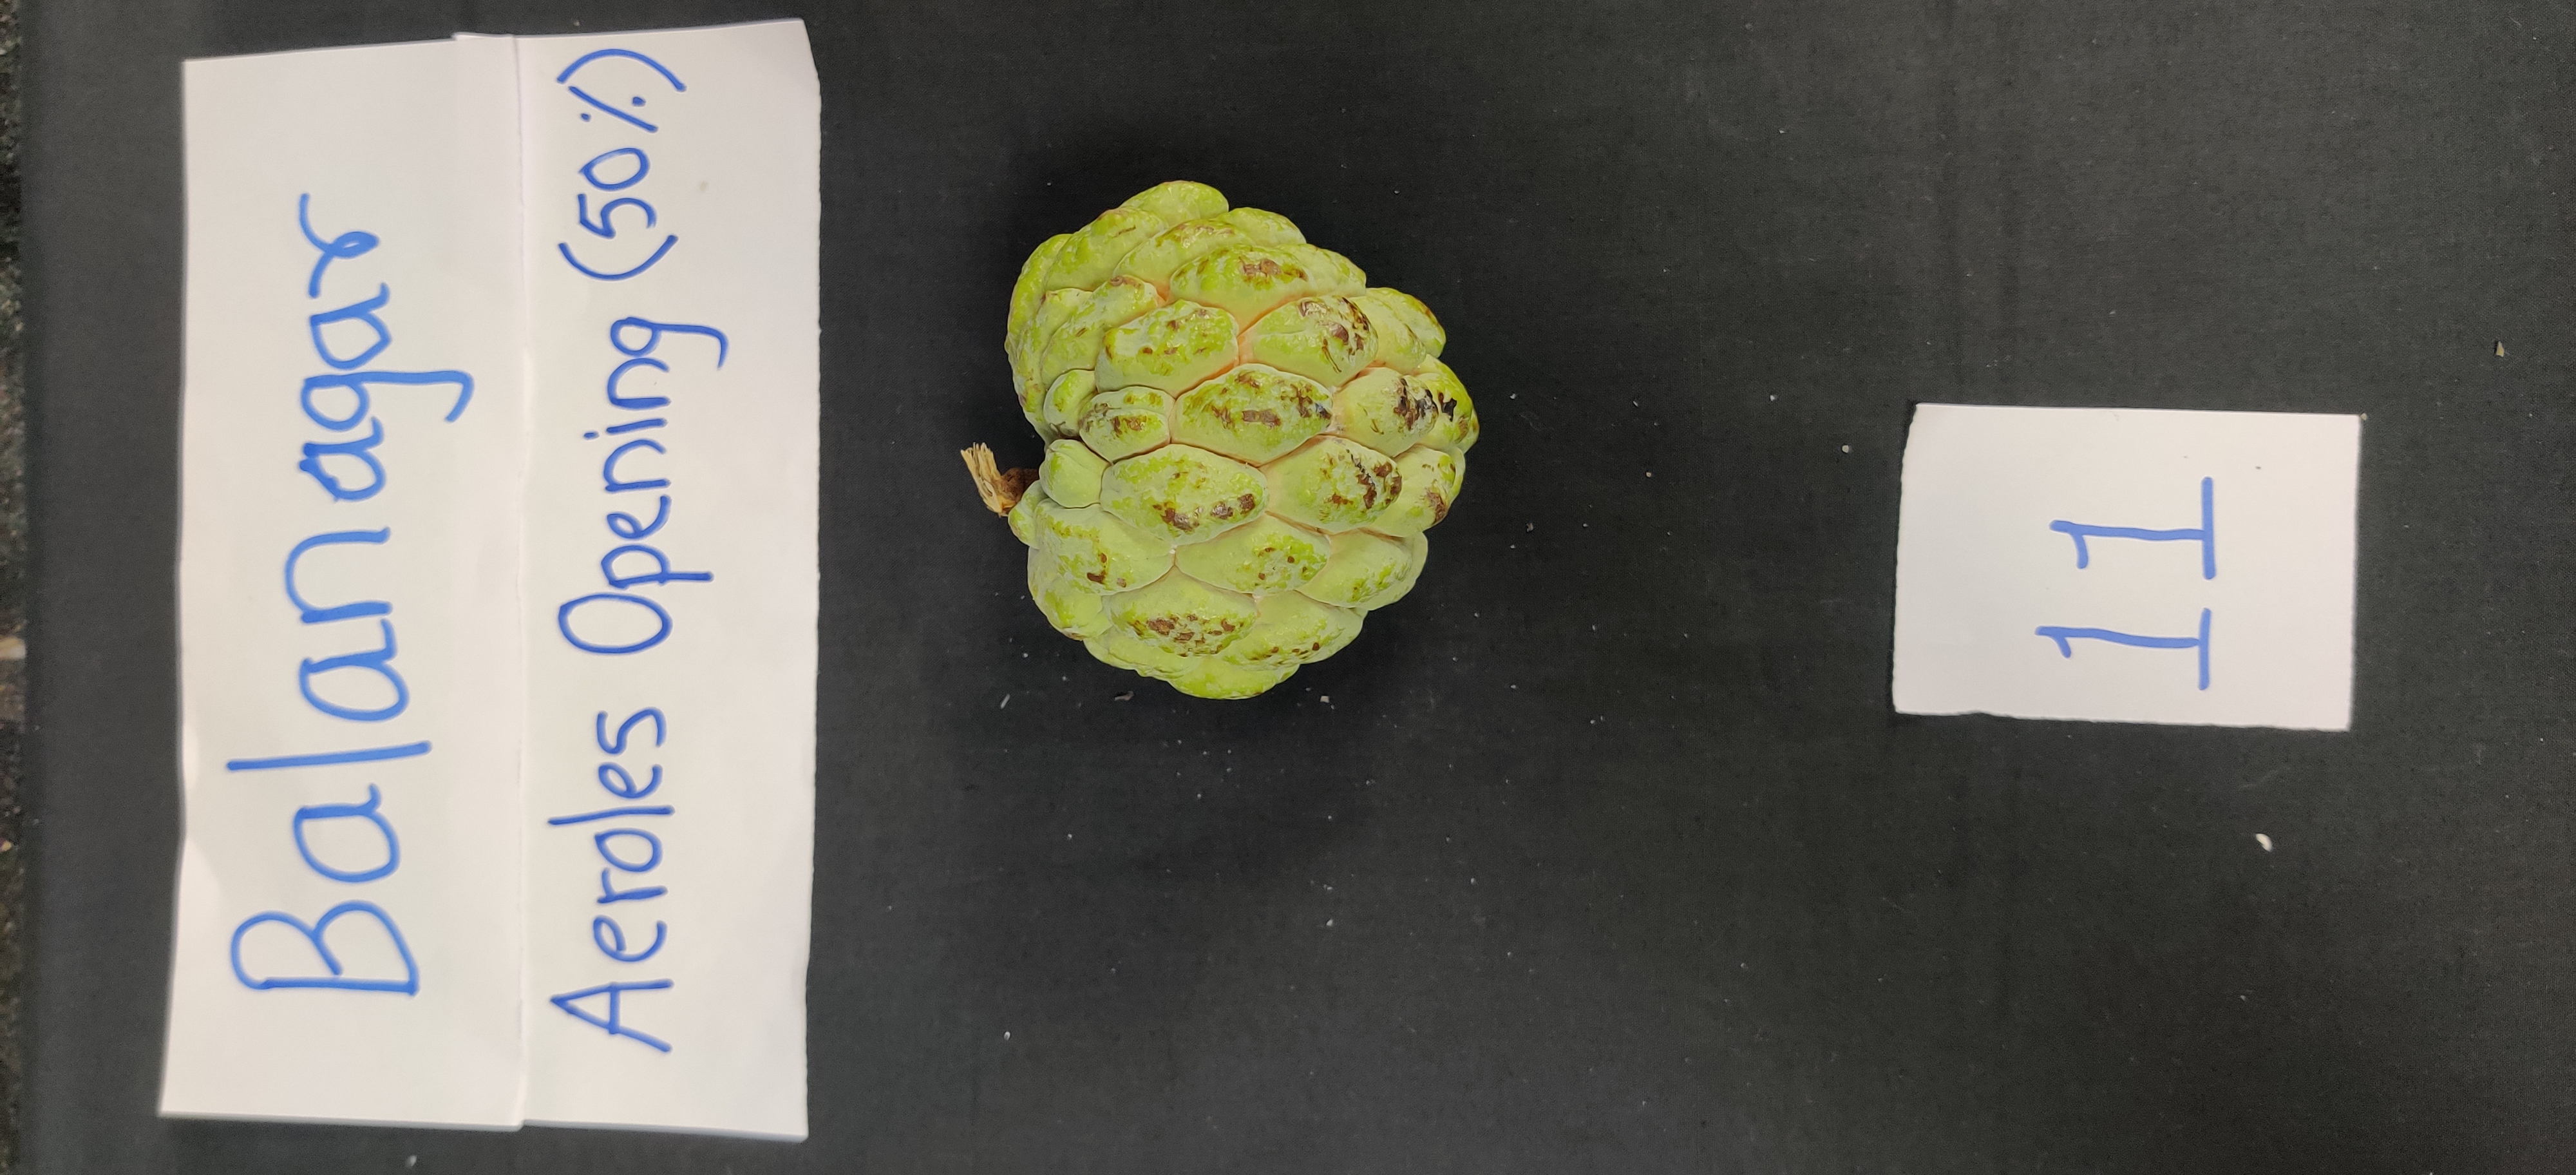 Balanagar
Aeroles Opening (50%)
11